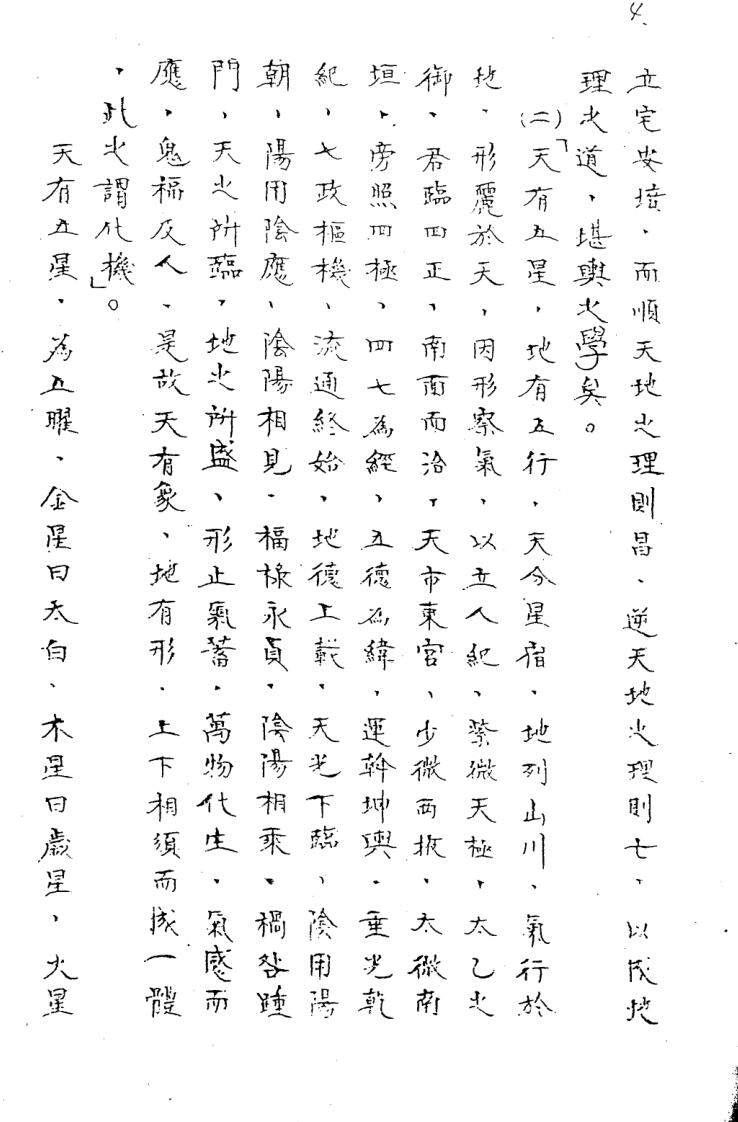 4.
立宅安墳、而順天地之理則昌、逆天地之理則亡、以成地
理之道、堪輿之學矣。
(二)「天有五星、地有五行、天分星宿、地列山川、氣行於
地、形麗於天、因形察氣、以立人紀、紫微天極、太乙之
御、君臨四正、南面而治、天市東宮、少微西掖、太微南
垣、旁照四極、四七為經、五德為緯、運斡坤輿、垂光乾
紀、七政樞機、流通終始、地德上載、天光下臨、陰用陽
朝、陽用陰應、陰陽相見、福祿永貞、陰陽相乘、禍咎踵
門、天之所臨、地之所盛、形止氣蓄、萬物化生、氣感而
應、鬼福及人、是故天有象、地有形、上下相須而成一體
、此之謂化機」。
天有五星、為五曜、金星曰太白、木星曰歲星、火星